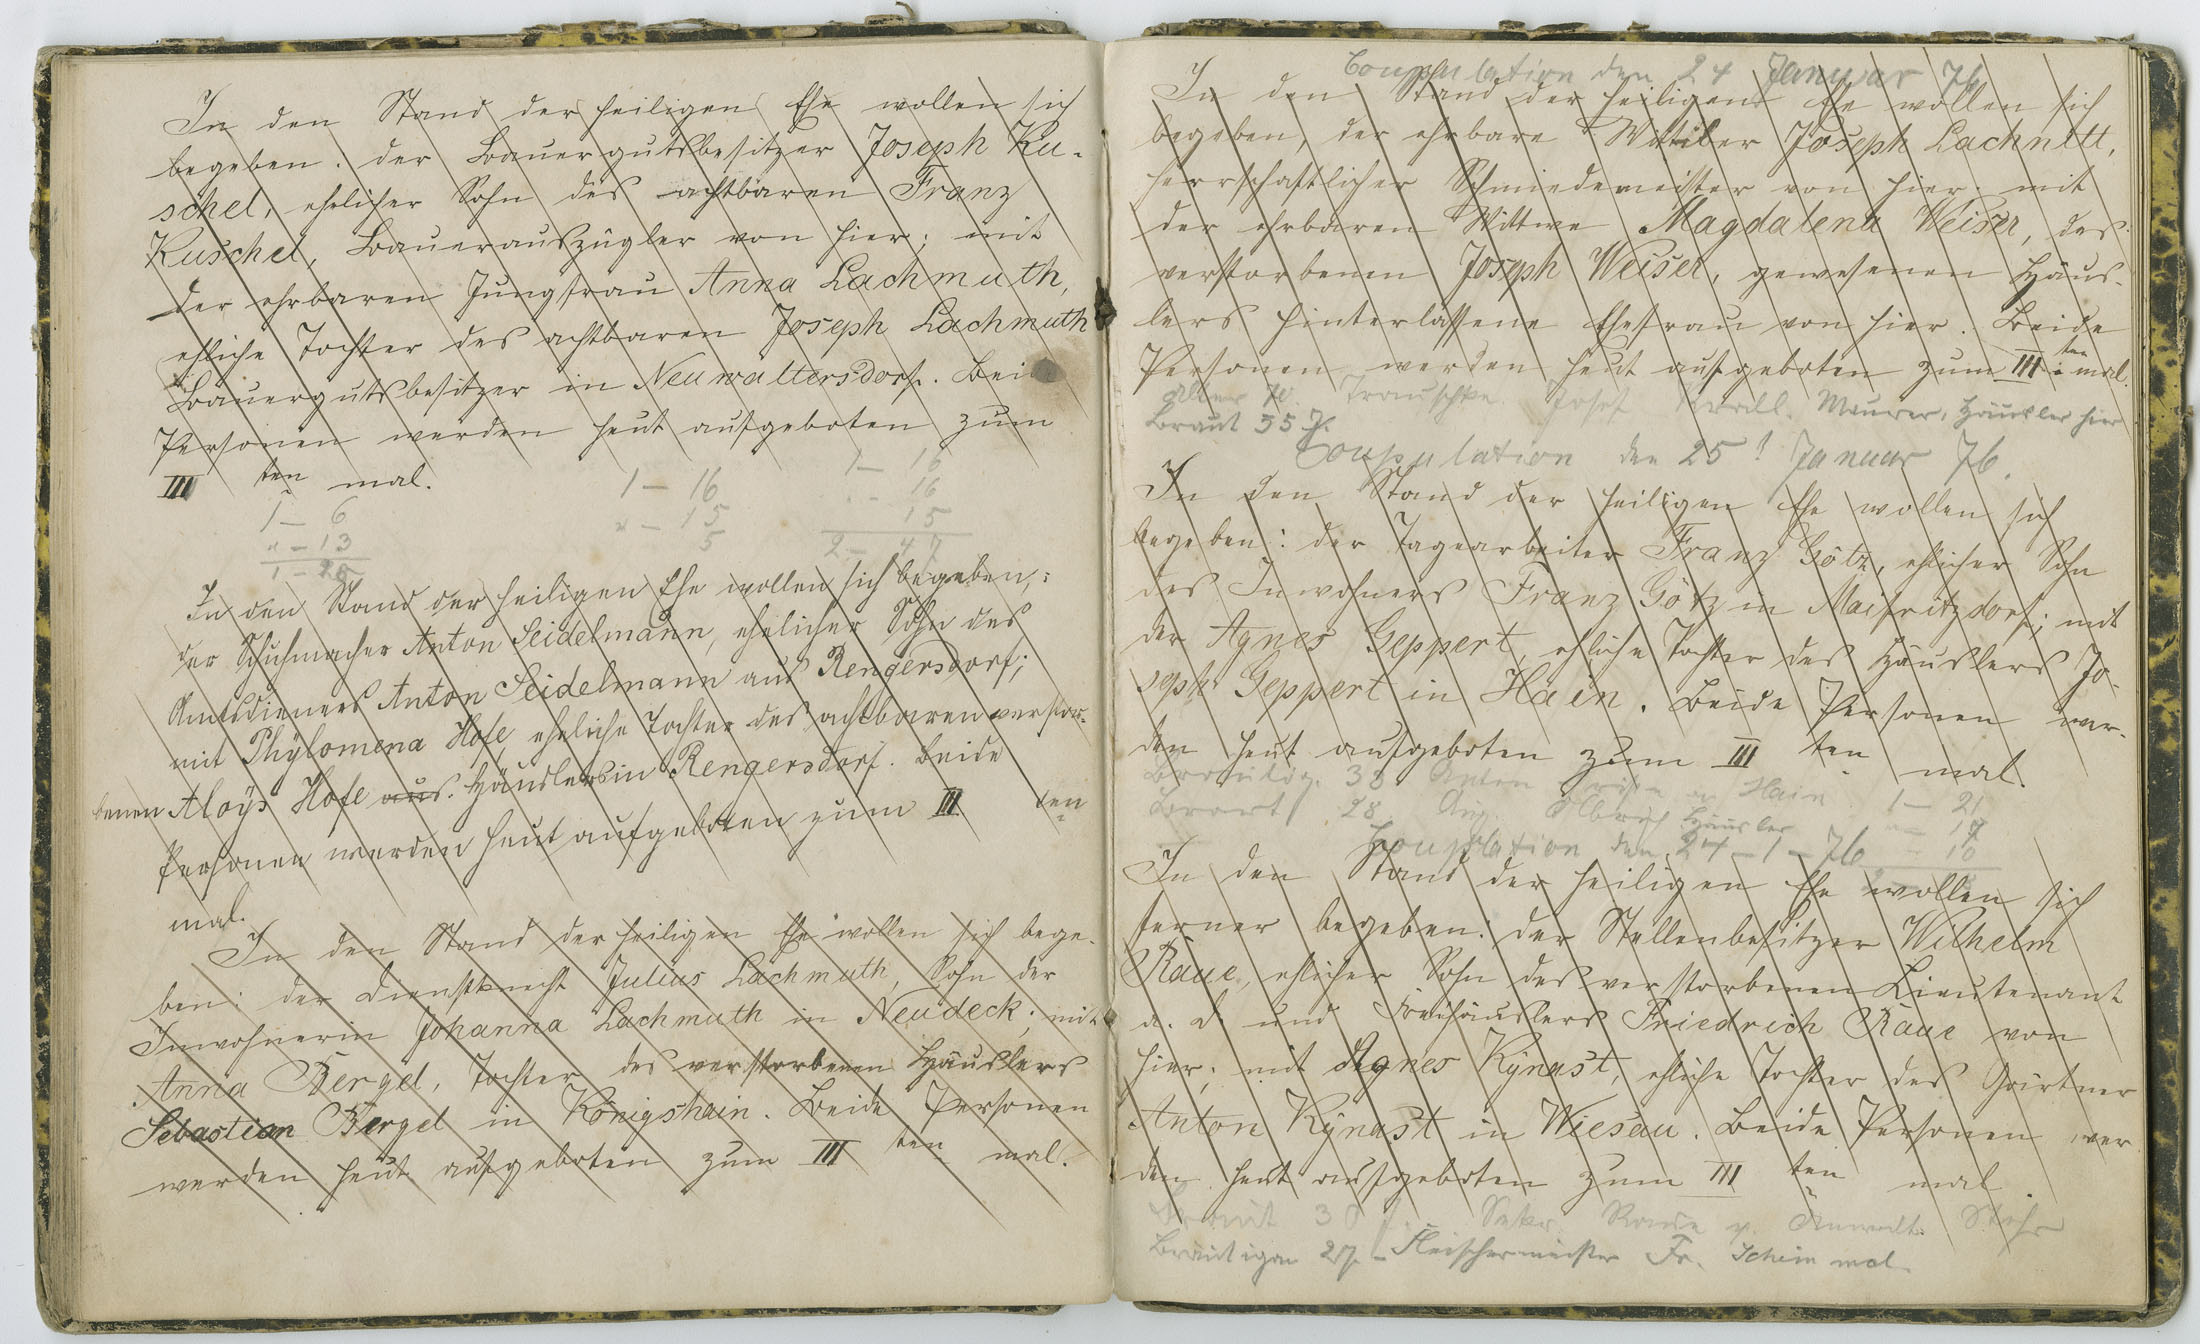 In den Stand der heiligen Ehe wollen sich
begeben: der Bauergutsbesitzer Joseph Ku-
schel, ehelicher Sohn des achtbaren Franz
Kuschel, Bauerauszügler von hier; mit
der ehrbaren Jungfrau Anna Lachmuth,
ehliche Tochter des achtbaren Joseph Lachmuth
Bauergutsbesitzer in Neuwaltersdorf. Beide
Personen werden heut aufgeboten zum
III ten mal.
1 – 6
" – 13
1 – 16
" – 15
5
1 – 16
16
15
2 – 47
In den Stand der heiligen Ehe wollen sich begeben,:
der Schuhmacher Anton Seidelmann, ehelicher Sohn des
Amtsdieners Anton Seidelmann aus Rengersdorf;
mit Phÿlomena Hofe, eheliche Tochter des achtbaren verstor-
benen Aloÿs Hofe aus. Häuslers in Rengersdorf. Beide
Personen werden heut aufgeboten zum III ten
mal.
In den Stand der heiligen Ehe wollen sich bege-
ben: der Dienstknecht Julius Lachmuth, Sohn der
Inwohnerin Johanna Lachmuth in Neudeck; mit
Anna Bergel, Tochter des verstorbenen Häuslers
Sebastian Bergel in Königshain. Beide Personen
werden heut aufgeboten zum III ten mal.
Coupulation den 24 Januar 76
In den Stand der heiligen Ehe wollen sich
begeben, der ehrbare Wittiber Joseph Lachnitt,
herrschaftlicher Schmiedemeister von hier; mit
der ehrbaren Wittwe Magdalena Weiser, des
verstorbenen Joseph Weiser, gewesenen Häus-
lers hinterlassene Ehefrau von hier. Beide
Personen werden heut aufgeboten zum III ten mal.
Josef Maurer, Häusler hier
Braut 55 J.
Coupulation den 25! Januar 76.
In den Stand der heiligen Ehe wollen sich
begeben: der Tagearbeiter Franz Götz, ehlicher Sohn
des Inwohners Franz Götz in Maifritzdorf; mit
der Agnes Geppert, ehliche Tochter des Häuslers Jo-
seph Geppert in Hain. Beide Personen wer-
den heut aufgeboten zum III ten mal.
Bräutig. 38 Anton Hain 1 – 21
Braut 28 Aug. Häusler " – 17
Coupulation den 24 – 1 – 76 10
In den Stand der heiligen Ehe wollen sich
ferner begeben: der Stellenbesitzer Wilhelm
Raue, ehlicher Sohn des verstorbenen Lieutenant
a. D. und Freihäuslers Friedrich Raue von
hier; mit Agnes Kÿnast, ehliche Tochter des Gärtner
Anton Kÿnast in Wiesau. Beide Personen wer
den heut aufgeboten zum III ten mal.
Braut 30
Bräutigam 27. – Fleischermeister Fr.